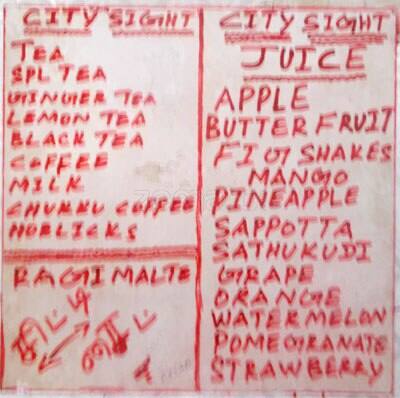 CITY SIGHT
TEA
SPL TEA
GINGER TEA
LEMON TEA
BLACK TEA
COFFEE
MILK
CHUKKU COFFEE
HORLICKS
RAGI MALTE
சிட்டி
சைட்
CITY SIGHT
JUICE
APPLE
BUTTER FRUIT
FIG SHAKES
MANGO
PINEAPPLE
SAPPOTTA
SATHUKUDI
GRAPE
ORANGE
WATERMELON
POMEGRANATE
STRAWBERRY